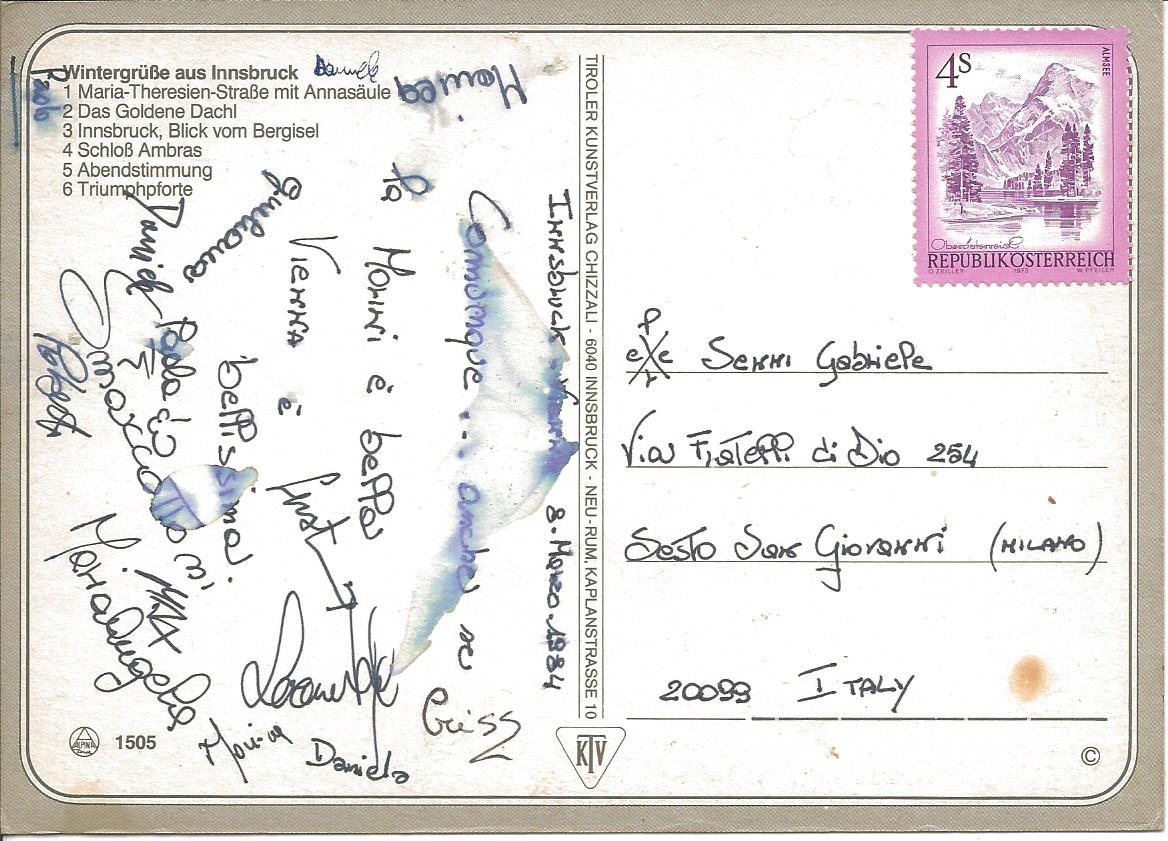 Wintergrüße aus Innsbruck
1 Maria-Theresien-Straße mit Annasäule
2 Das Goldene Dachl
3 Innsbruck, Blick vom Bergisel
4 Schloß Ambras
5 Abendstimmung
6 Triumphpforte
Paolo
Monica
Innsbruck - Vienna 8-Marzo-1984
Comunque... anche se
la Monni è bella
Vienna è
bellissima.
Giuliana
Daniele
Paola
Marco
MAX
Mariangela
Daniela
Criss
ALPINA
1505
TIROLER KUNSTVERLAG CHIZZALI - 6040 INNSBRUCK - NEU-RUM, KAPLANSTRASSE 10
KTV
4S
ALMSEE
Oberösterreich
REPUBLIK ÖSTERREICH
O. ZEILLER 1973 W. PFEILER
Senni Gabriele
Via Fratelli di Dio 254
Sesto San Giovanni (MILANO)
20099 ITALY
©